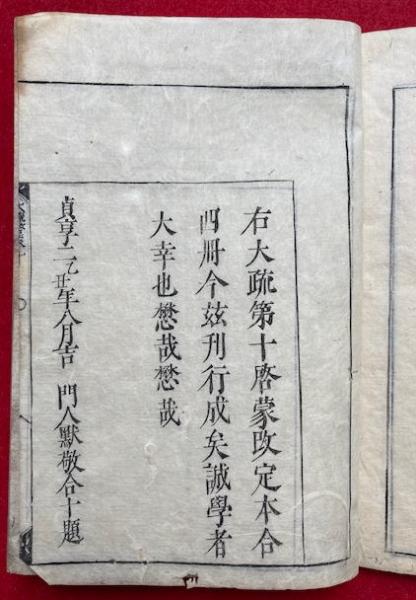 右大疏第十啓蒙改定本合
四冊今玆刊行成矣誠學者
大幸也懋哉懋哉
貞享二乙丑年八月吉 門人默敬合十題